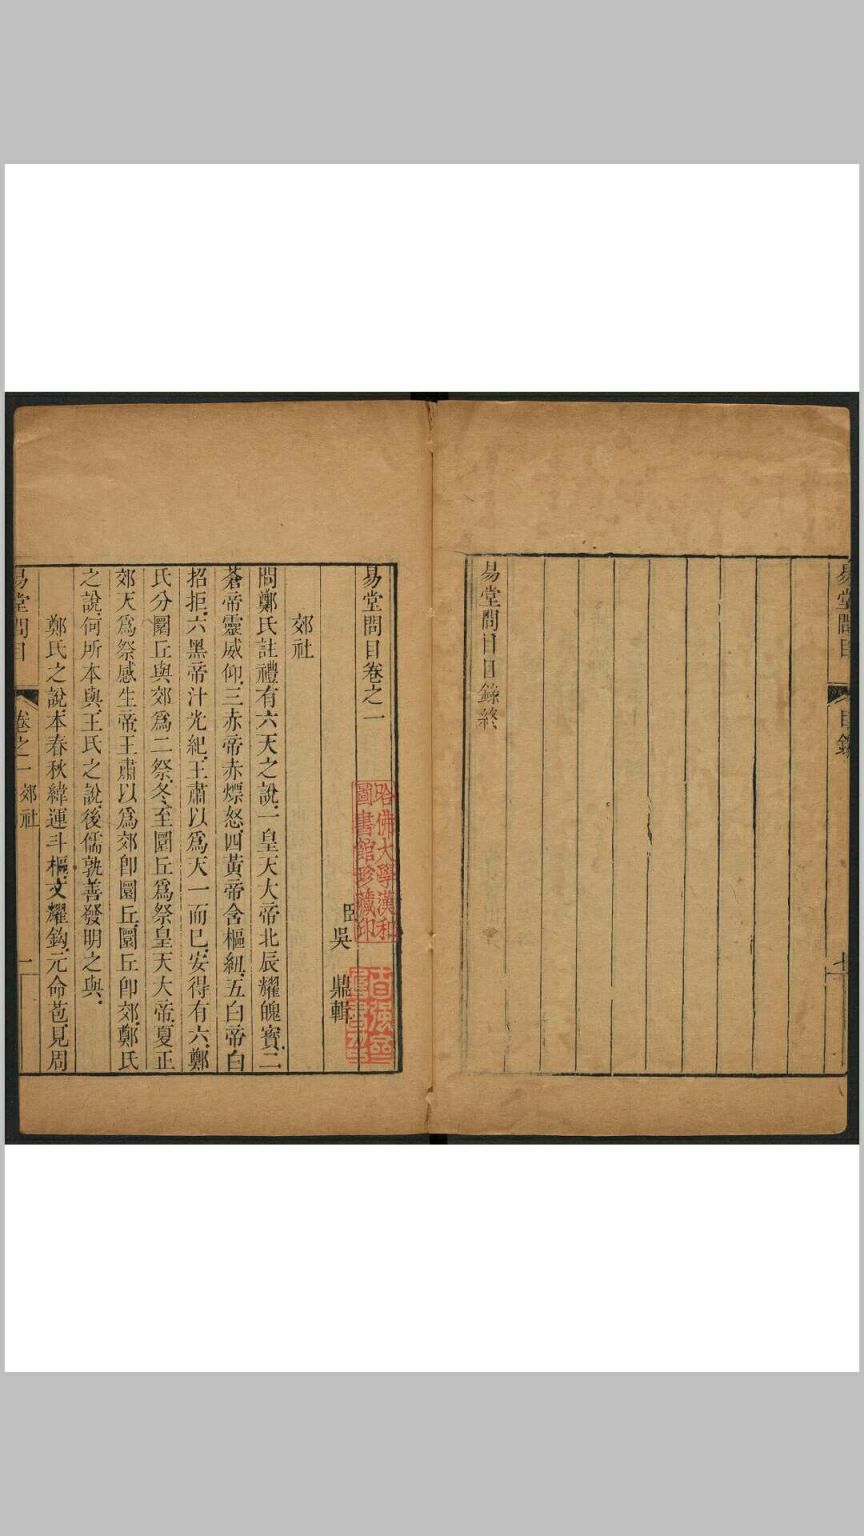 目錄
易堂問目目錄終
易堂問目卷之一
哈佛大學漢和
圖書館珍藏印
臣吳 鼎輯
郊社
問鄭氏註禮有六天之說一皇天大帝北辰耀魄寶二
蒼帝靈威仰三赤帝赤熛怒四黃帝含樞紐五白帝白
招拒六黑帝汁光紀王肅以爲天一而已安得有六鄭
氏分圜丘與郊爲二祭冬至圜丘爲祭皇天大帝夏正
郊天爲祭感生帝王肅以爲郊卽圜丘圜丘卽郊鄭氏
之說何所本與王氏之說後儒孰善發明之與
鄭氏之說本春秋緯運斗樞文耀鈎元命苞見周
易堂問目 卷之一 郊社 一